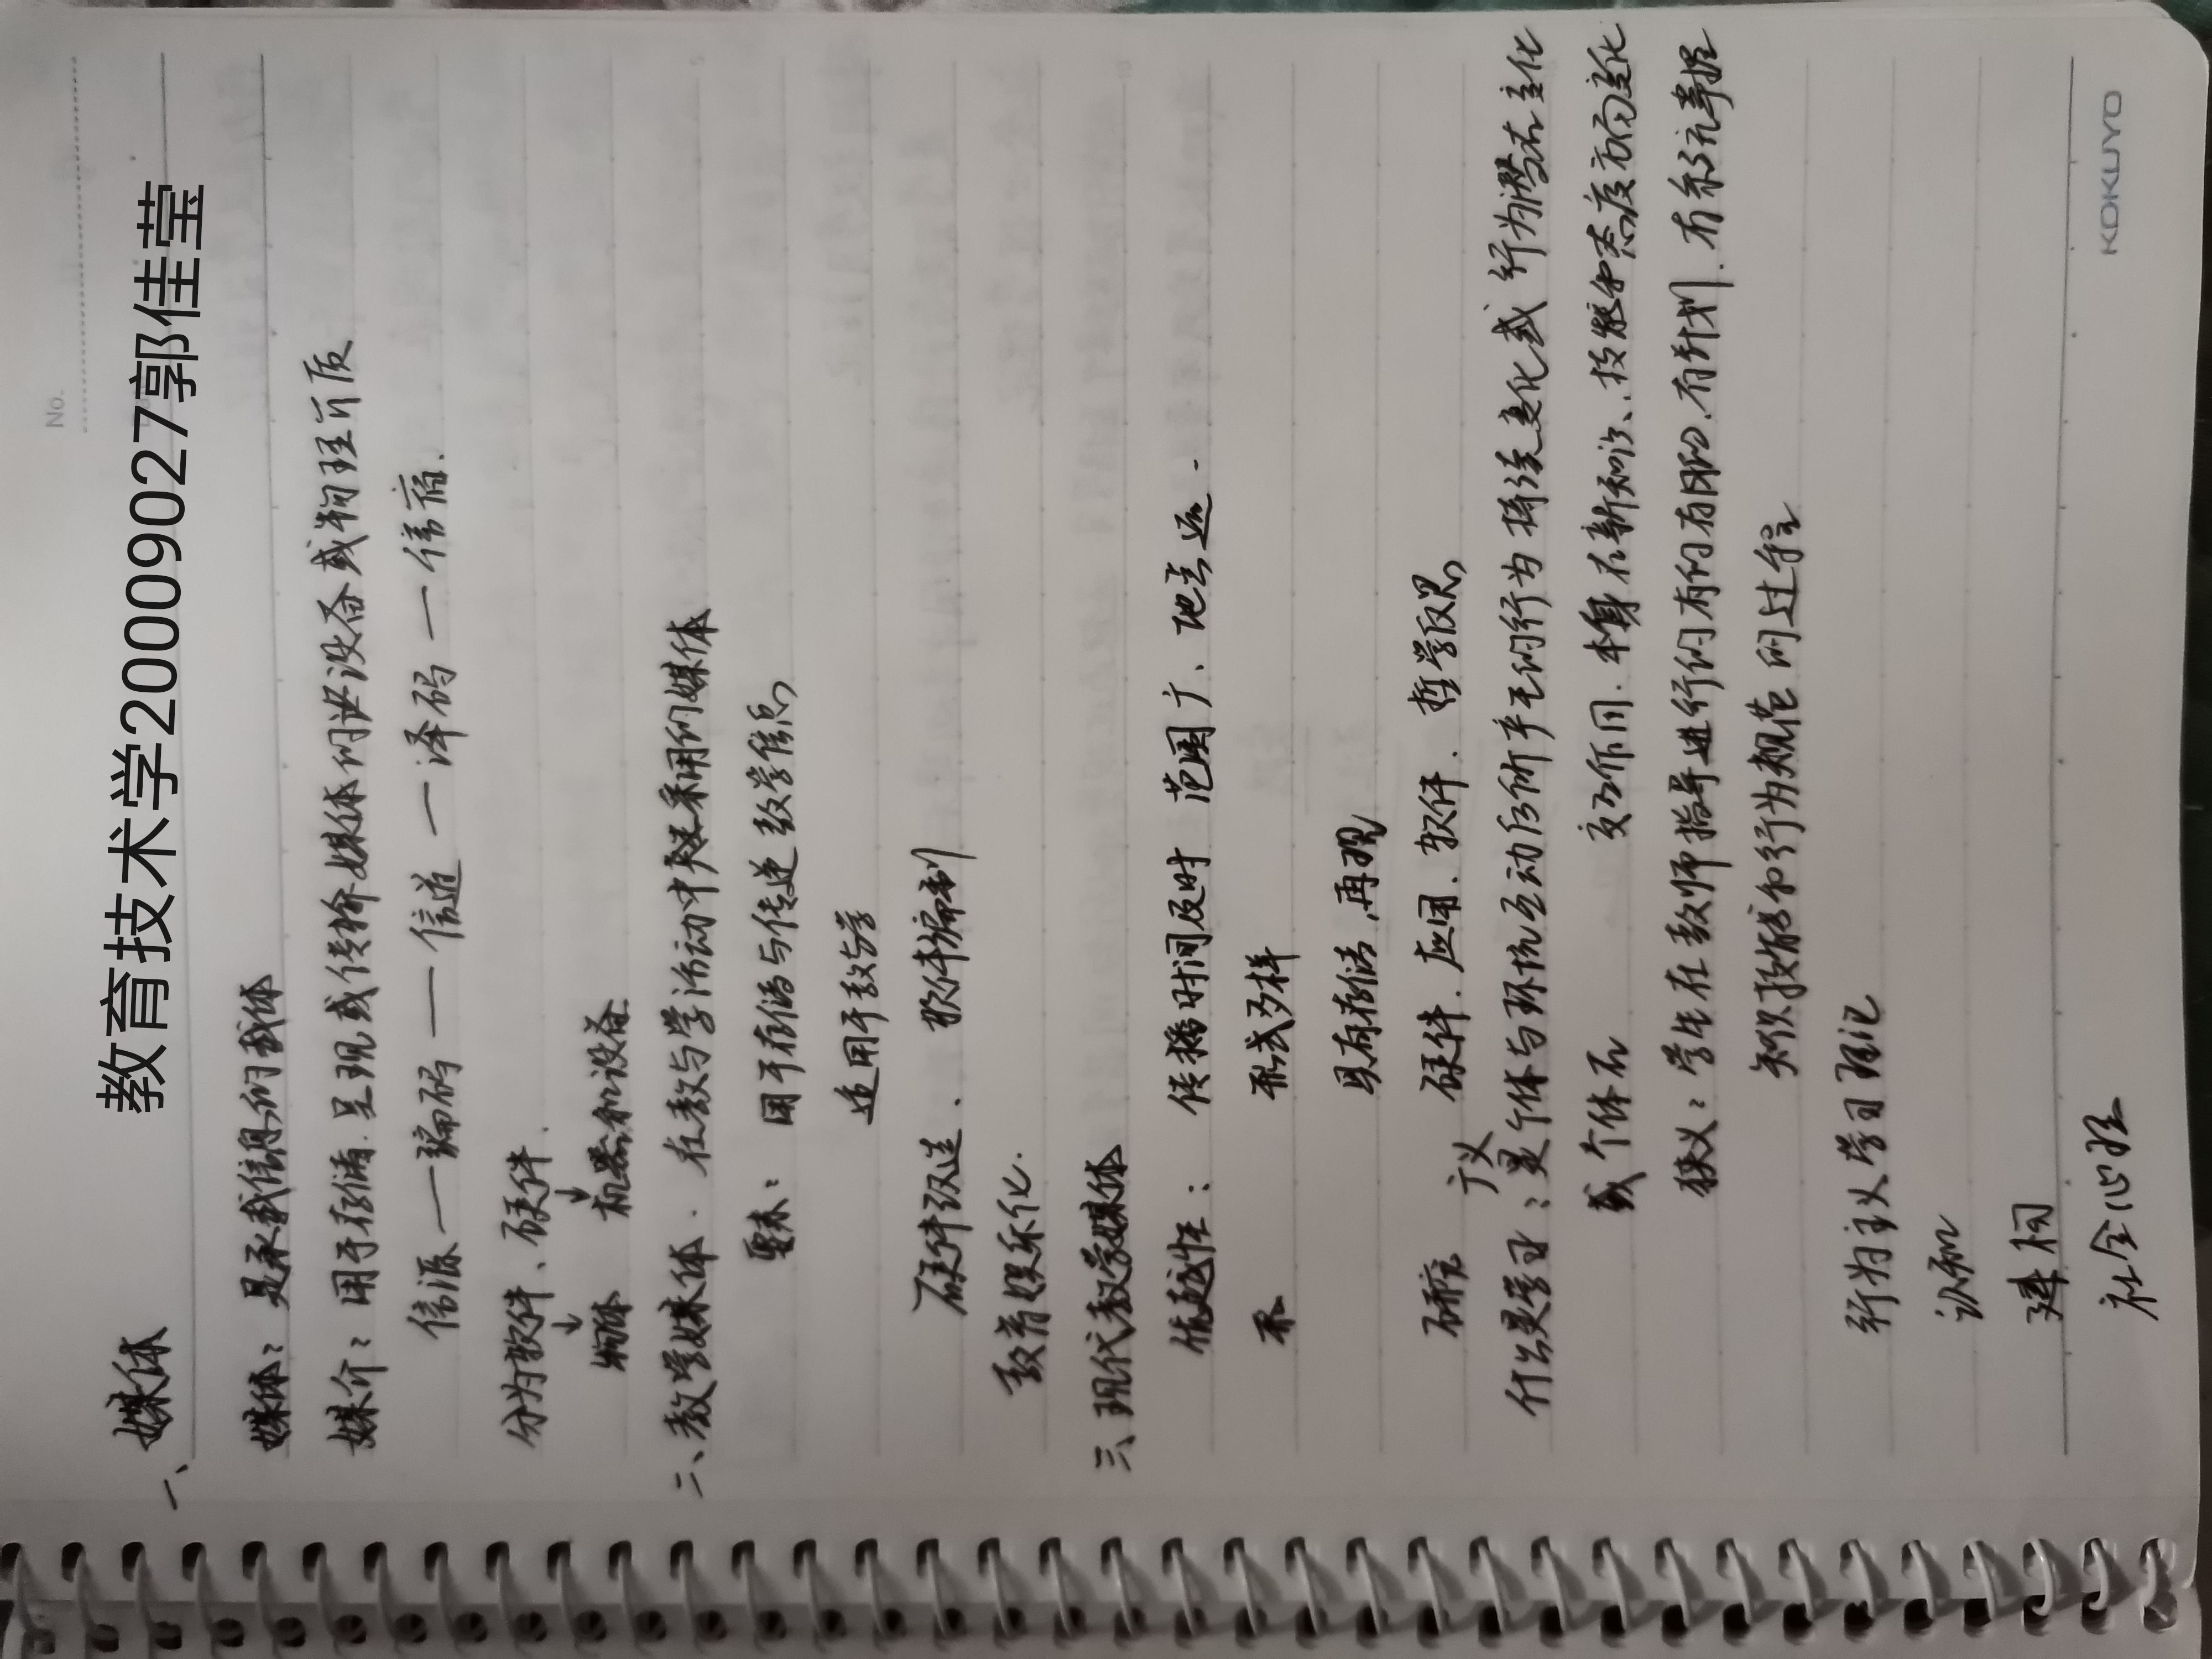 No.
教育技术学20009027郭佳莹
一、媒体
媒体：是承载信息的载体
媒介：用于存储、呈现或传输媒体的设备或物理介质
信源—编码—信道—译码—信宿.
分为软件、硬件.
↓ ↓
机器和设备
二、教学媒体. 在教与学活动中采用的媒体
要素：用于存储与传递教学信息
适用于教与学
硬件改造、软件编制
教育娱乐化.
三、现代教学媒体
优越性：传播时间及时 范围广、地点远.
形式多样
具有存储,再现
研究 硬件.应用、软件、哲学反思
广义
什么是学习：是个体与环境互动后所产生的行为持续变化或行为潜在变化
或个体不 本身在新知识、技能和态度方面变化
狭义：学生在教师指导进行的有目的.有计划.有系统掌握
知识技能和行为规范的过程
行为主义学习理论
认知
建构
社会心理
KOKUYO